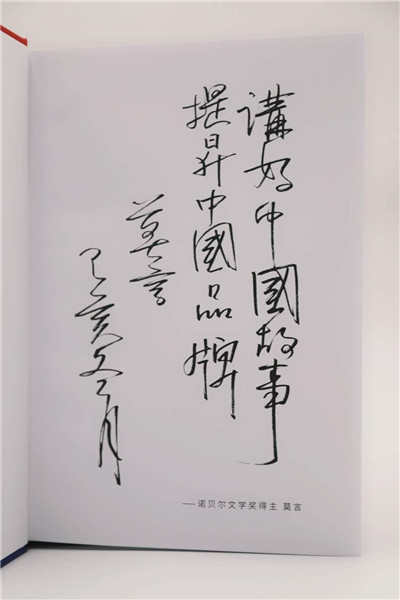 講好中國故事
提昇中國品牌
莫言
己亥文月
——诺贝尔文学奖得主 莫言